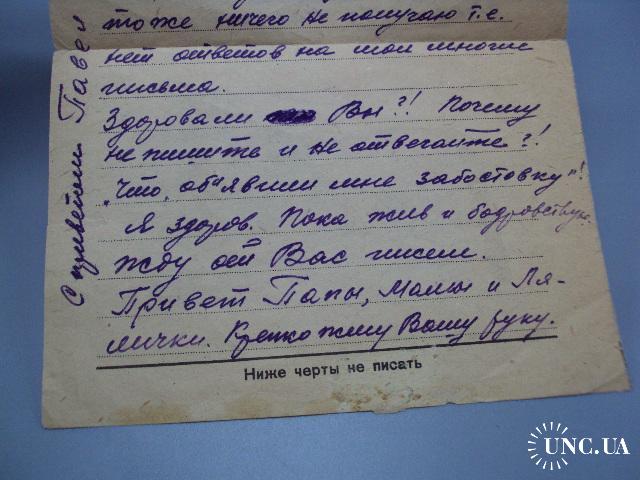 тоже ничего не получаю т.е.
нет ответов на мои многие
письма.
Здоровали Вы?! Почему
не пишите и не отвечаите?!
"Что, об'явили мне забостовку"!
Я здоров. Пока жив и бодрствую.
Жду от Вас писем.
Привет Папы, Мамы и Ля-
лички. Крепко жму Вашу руку.
С приветом Павел
Ниже черты не писать
UNC.UA